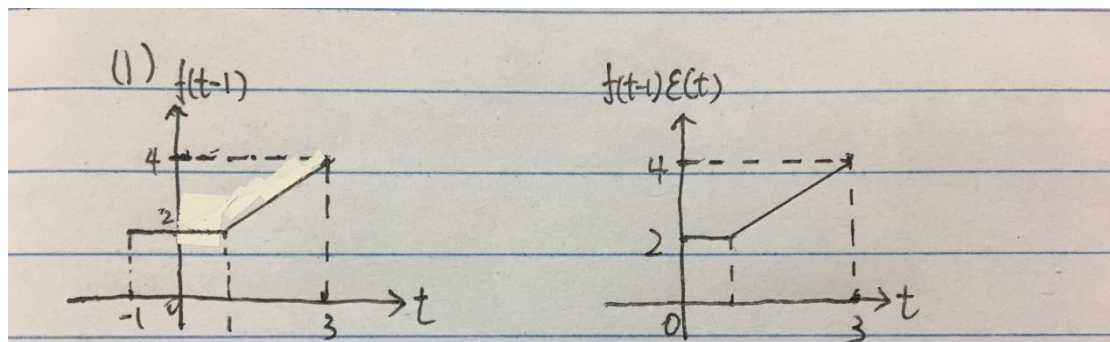 (1) f(t-1)
4
2
-1 0 1 3 t
f(t-1)ε(t)
4
2
0 3 t